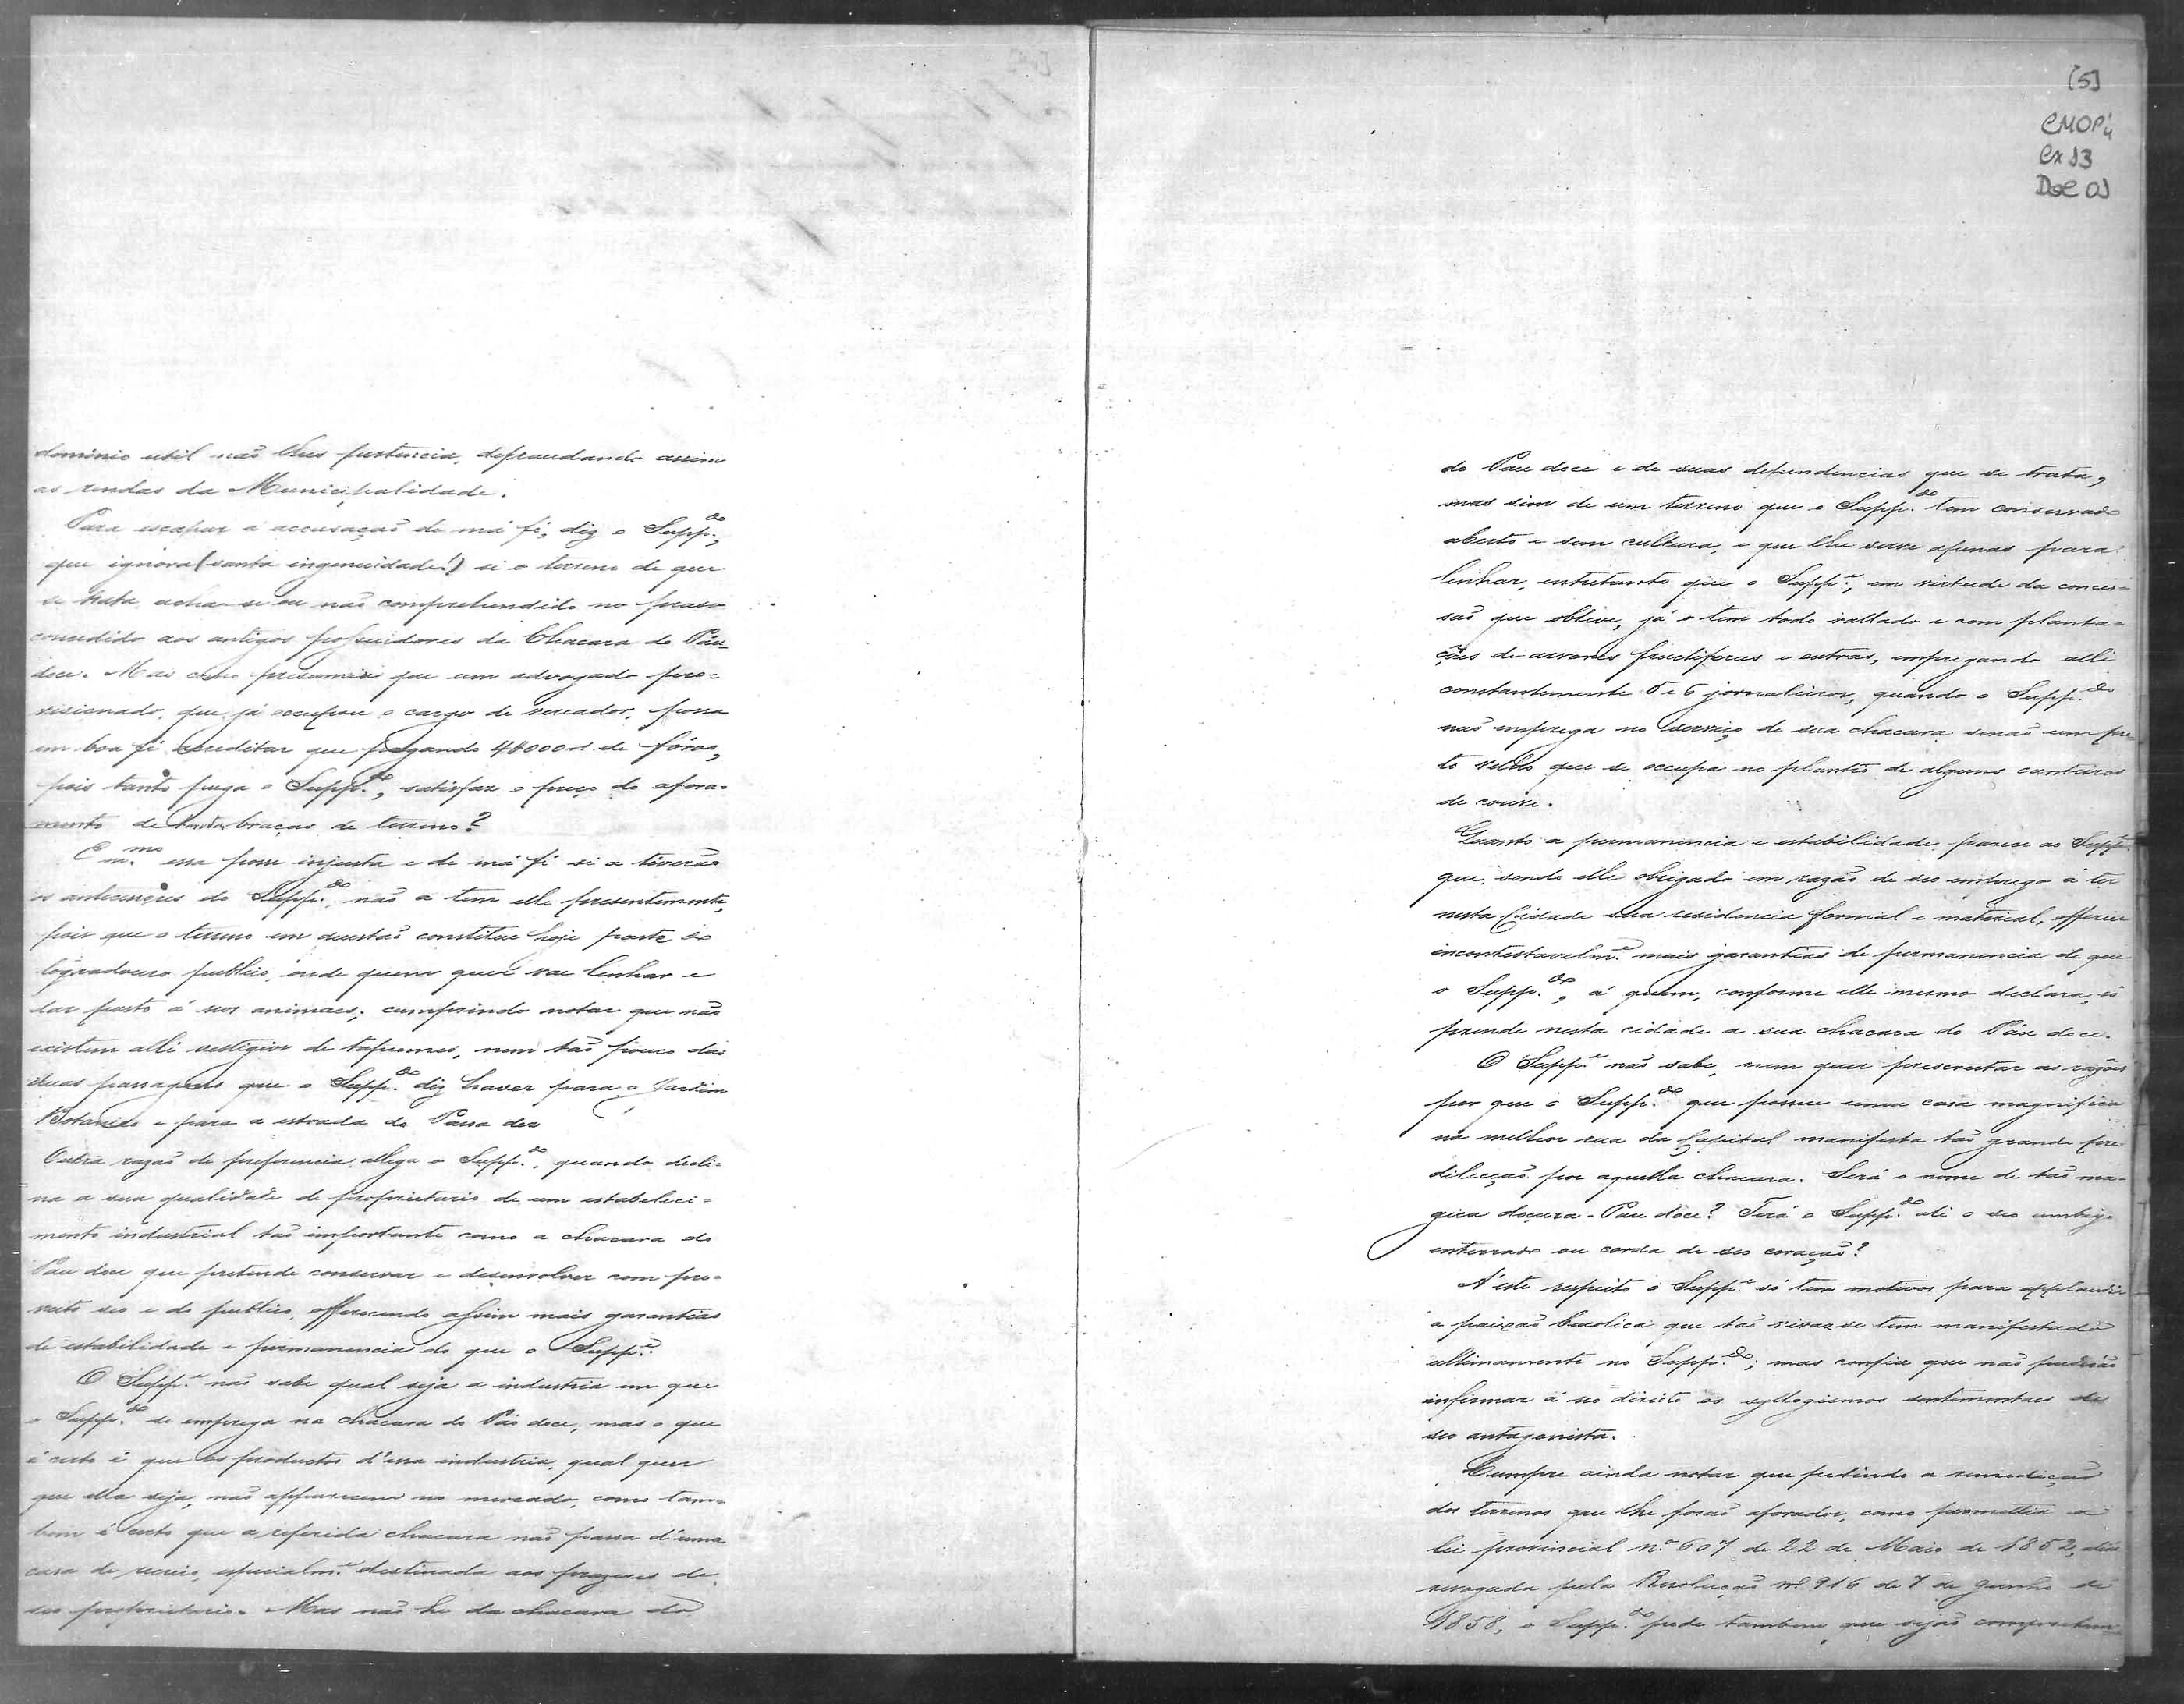 dominio util não lhes pertencia, defraudando assim
as rendas da Municipalidade.
Para escapar a accusação de má fé, diz o Supp.do,
que ignora (santa ingenuidade!) si o terreno de que
se trata acha-se ou não comprehendido no praso
concedido aos antigos possuidores da Chacara do Páu-
doce. Mas como presumir que um advogado pro=
visionado, que já occupou o cargo de vereador, possa
em boa fé acreditar que pagando 4$000 rs. de fóros,
pois tanto paga o Supp.do, satisfaz o preço do afora-
mento de tantas braças de terreno?
E m.mo essa posse injusta e de má fé si a tiverão
os antecessores do Supp.do, não a tem elle presentemente,
pois que o terreno em questão constitue hoje parte do
logradouro publico, onde quem quer vae lenhar e
dar pasto á seos animaes; cumprindo notar que não
existem alli vestigios de tapumes, nem tão pouco das
duas passagens que o Supp.do diz haver para o Jardim
Botanico e para a estrada do Passa dez
Outra razão de preferencia allega o Supp.do, quando decli=
na a sua qualidade de proprietario de um estabeleci=
mento industrial tão importante como a chacara do
Pau doce que pretende conservar e desenvolver com pro-
veito seo e do publico, offerecendo assim mais garantias
de estabilidade e permanencia do que o Supp.e
O Supp.e não sabe qual seja a industria em que
o Supp.do se emprega na chacara do Páo doce; mas o que
é certo é que os productos d'essa industria, qual quer
que ella seja, não apparecem no mercado, como tam-
bem é certo que a referida chacara não passa d'uma
casa de recreio, especialm.e destinada aos prazeres de
seo proprietario. Mas não he da chacara do
[5]
CMOP
Cx 13
Doc 01
do Pau doce e de suas dependencias que se trata,
mas sim de um terreno que o Supp.do tem conservado
aberto e sem cultura, e que lhe serve apenas para
lenhar, entretanto que o Supp.e, em virtude da conces=
são que obteve, já o tem todo vallado e com planta=
ções de arvores fructiferas e outras, empregando alli
constantemente 5 e 6 jornaleiros, quando o Supp.do
não emprega no serviço de sua chacara senão um pre
to velho que se occupa no plantio de alguns canteiros
de couve.
Quanto a permanencia e estabilidade, parece ao Supp.e
que, sendo elle obrigado em razão de seo emprego á ter
nesta Cidade sua residencia formal e material, offerece
incontestavelm.e mais garantias de permanencia de que
o Supp.do, á quem, conforme elle mesmo declara, só
prende nesta cidade a sua chacara do Páu doce.
O Supp.e não sabe, nem quer prescrutar as razões
por que o Supp.do que possue uma casa magnifica
na melhor rua da Capital manifesta tão grande pre-
dilecção por aquella chacara. Será o nome de tão ma-
gica doçura - Pau doce? Terá o Supp.do ali o seo umbigo
enterrado ou corda de seo coração?
A'este respeito o Supp.e só tem motivos para applaudir
a paixão bucolica que tão vivaz se tem manifestado
ultimamente no Supp.do; mas confia que não poderão
infirmar á seo direito os syllogismos sentimentaes de
seo antagonista.
Cumpre ainda notar que pedindo a remedição
dos terrenos que lhe forão aforados, como permettia a
lei provincial n.o 607 de 22 de Maio de 1852,
revogada pela Resolução n.o 916 de 7 de Junho de
1858, o Supp.do pede tambem que sejão